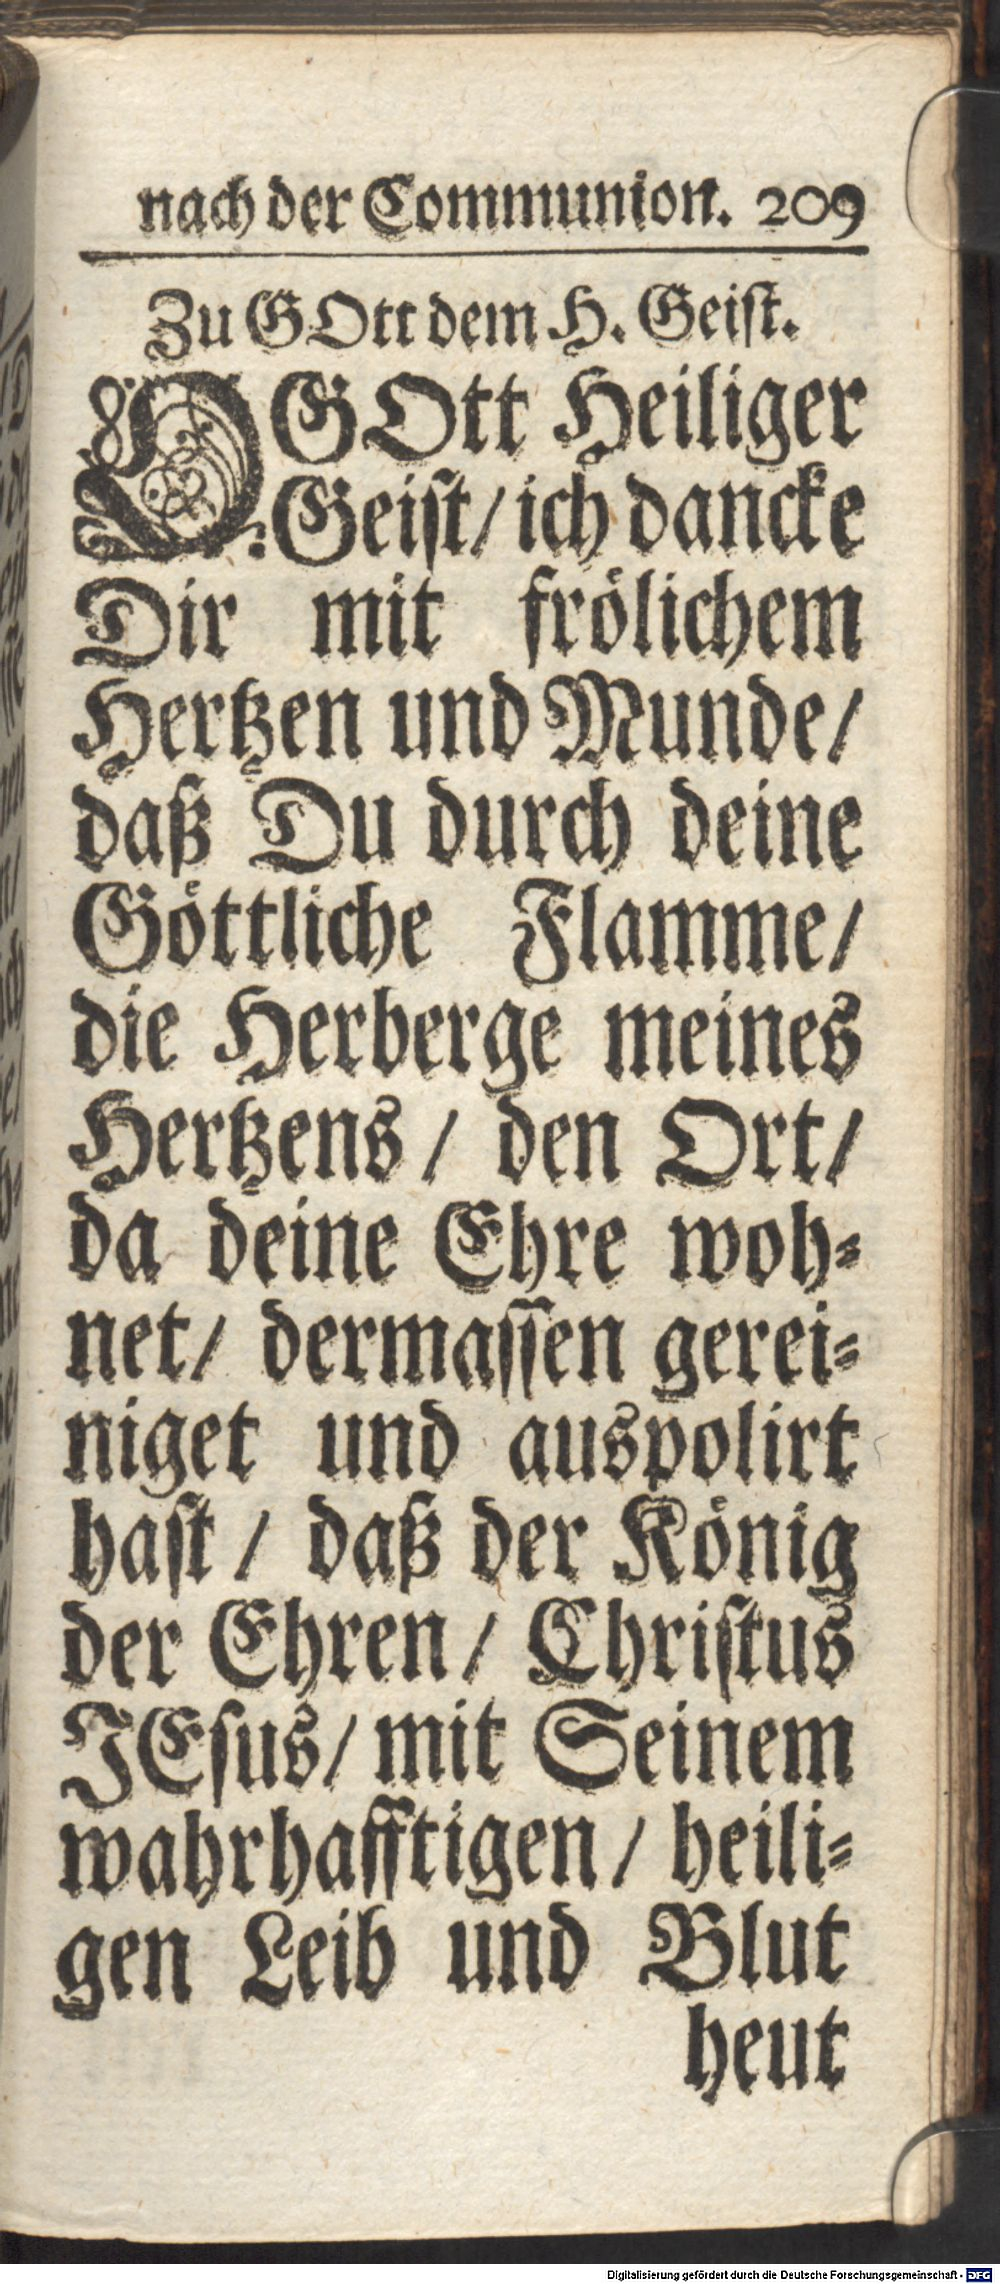 nach der Communion. 209
Zu GOtt dem H. Geist.
O GOtt Heiliger
Geist/ ich dancke
Dir mit frölichem
Hertzen und Munde/
daß Du durch deine
Göttliche Flamme/
die Herberge meines
Hertzens / den Ort/
da deine Ehre woh-
net/ dermassen gerei-
niget und auspolirt
hast / daß der König
der Ehren/ Christus
JEsus/ mit Seinem
wahrhafftigen/ heili-
gen Leib und Blut
heut
Digitalisierung gefördert durch die Deutsche Forschungsgemeinschaft - DFG